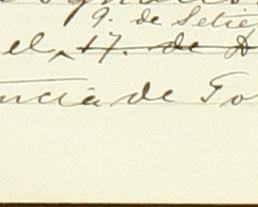 9. de Setie
el ^ 17. de D
ncia de Go